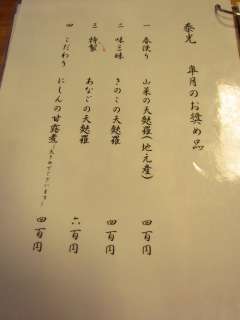 泰光　皐月のお奨め品
一　春便り　山菜の天麩羅(地元産)　四百円
二　味三昧　きのこの天麩羅　四百円
三　特製　あなごの天麩羅　六百円
四　こだわり　にしんの甘露煮　四百円